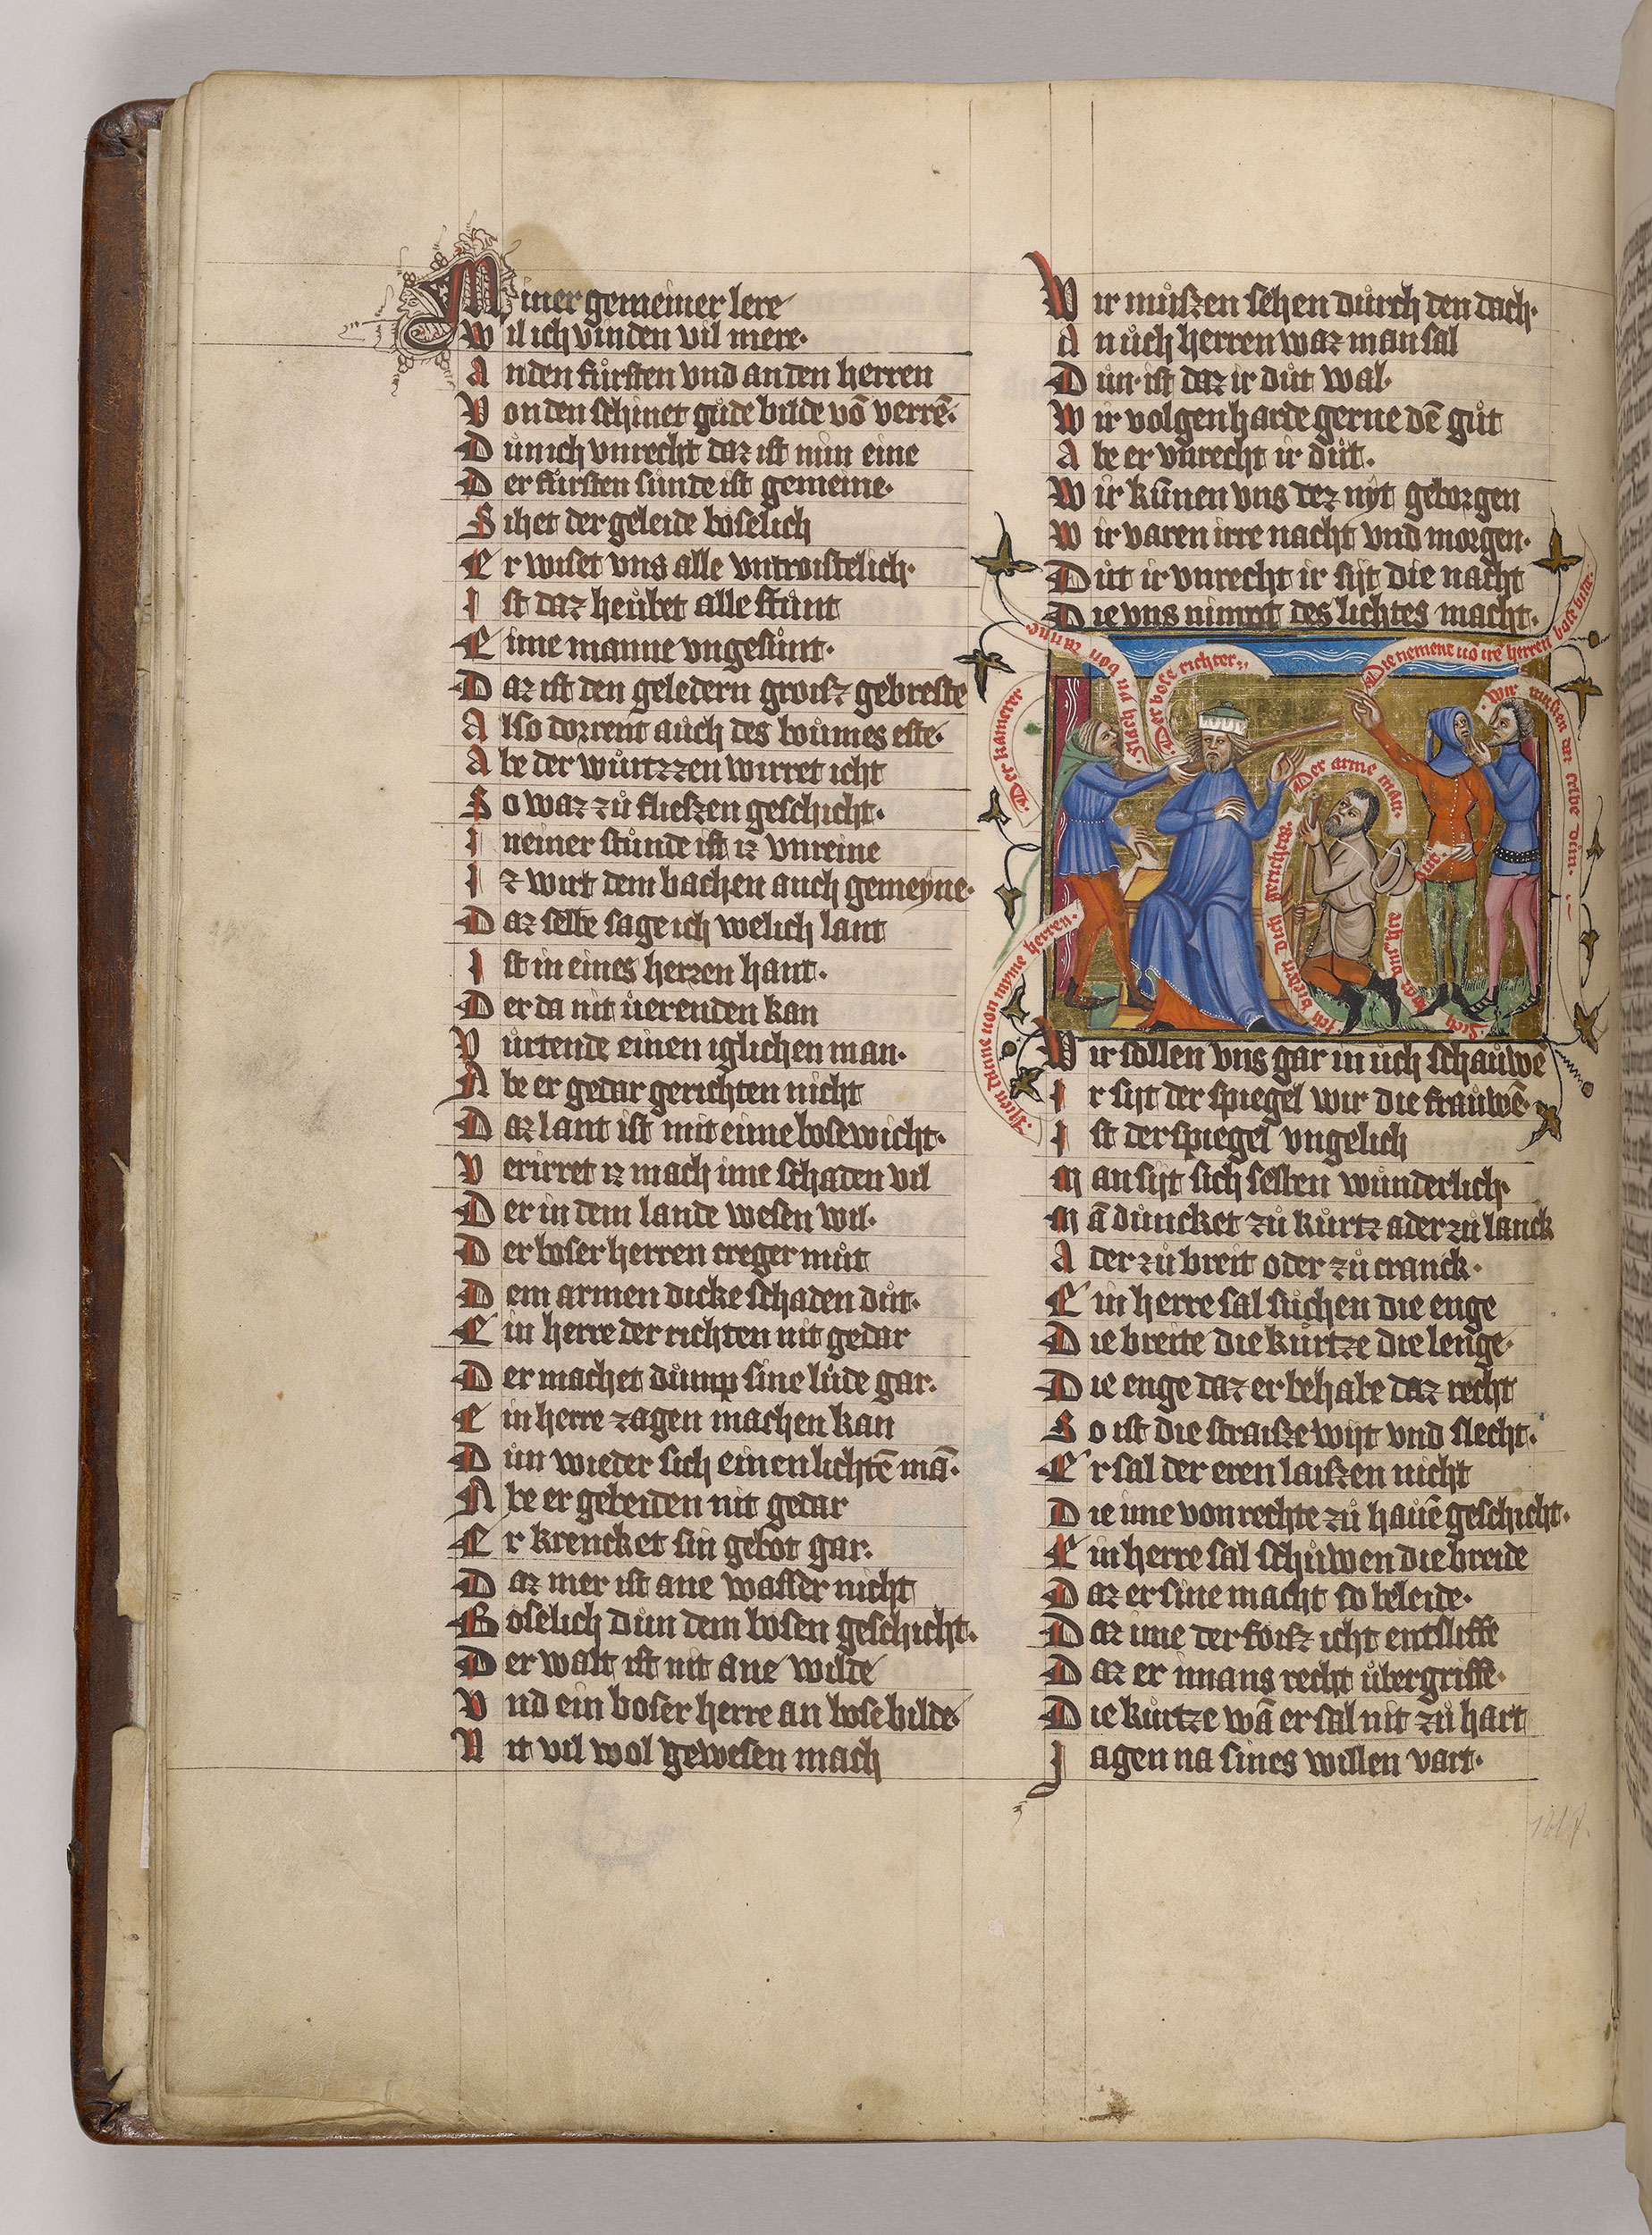 Miner gemeiner lere
Wil ich vinden vil mere·
An den fůrsten vnd an den herren
Von den schinet gůde bilde vō verrē·
Důn ich vnrecht daz ist min eine
Der fůrsten sůnde ist gemeine·
Sihet der geleide boselich
Er wiset vns alle vntroistelich·
Ist daz heůbet alle stůnt
Eime manne vngesůnt·
Daz ist den geledern groisz gebreste
Also dorrent aůch des boůmes este·
Abe der wůrtzzen wirret icht
So waz zů fliessen geschicht·
In einer stůnde ist iz vnreine
Iz wirt dem bachen auch gemeyne·
Daz selbe sage ich welich lant
Ist in eines herren hant·
Der da nit verenden kan
Vůrtende einen iglichen man·
Abe er gedar gerichten nicht
Daz lant ist mit eime bosewicht·
Verirret iz mach ime schaden vil
Der in dem lande wesen wil·
Der boser herren treger můt
Dem armen dicke schaden důt·
Ein herre der richten nit gedar
Der machet důmp sine lůde gar·
Ein herre zagen machen kan
Důn wieder sich einen lichtē mā·
Abe er gebeiden nit gedar
Er krencket sin gebot gar·
Daz mer ist ane wasser nicht
Boselich dun dem bosen geschicht·
Der walt ist nit ane wilde
Vnd ein boser herre an bose bilde·
Nit vil wol gewesen mach
Wir můszen sehen důrch den dach·
An ůch herren waz man sal
Důn· ist daz ir důt wal·
Wir volgen harte gerne dē gůt
Abe er vnrecht ir důt·
Wir kůnen vns dez nyt geborgen
Wir varen irre nacht vnd morgen·
Důt ir vnrecht ir sijt die nacht
Die vns nimet des lichtes macht·
Nach u bon manne
Der bose richter
Die nement uō irē herren bose bilde
Wir mussen ir selbe dun
Der kamerer
Der arme man·
Ich bieden den gerichtes
Sich
Nien danne von myme herren·
Wir sollen vns gar in ůch schaůwē
Ir sijt der spiegel wir die fraůwē·
Ist der spiegel vngelich
Man sijt sich selben wůnderlich·
Mā důncket zů kůrtz ader zů lanck
Ader zů breit oder zů cranck·
Ein herre sal sůchen die enge
Die breite die kůrtze die lenge·
Die enge daz er behabe daz recht
So ist die straisze wijt vnd slecht·
Er sal der eren laiszen nicht
Die ime von rechte zů hauē geschicht·
Ein herre sal schůwen die breide
Daz er sine macht so beleide·
Daz ime der foisz icht entsliffe
Daz er imans recht ůbergriffe·
Die kůrtze wā er sal nit zů hart
Jagen na sines willen vart·